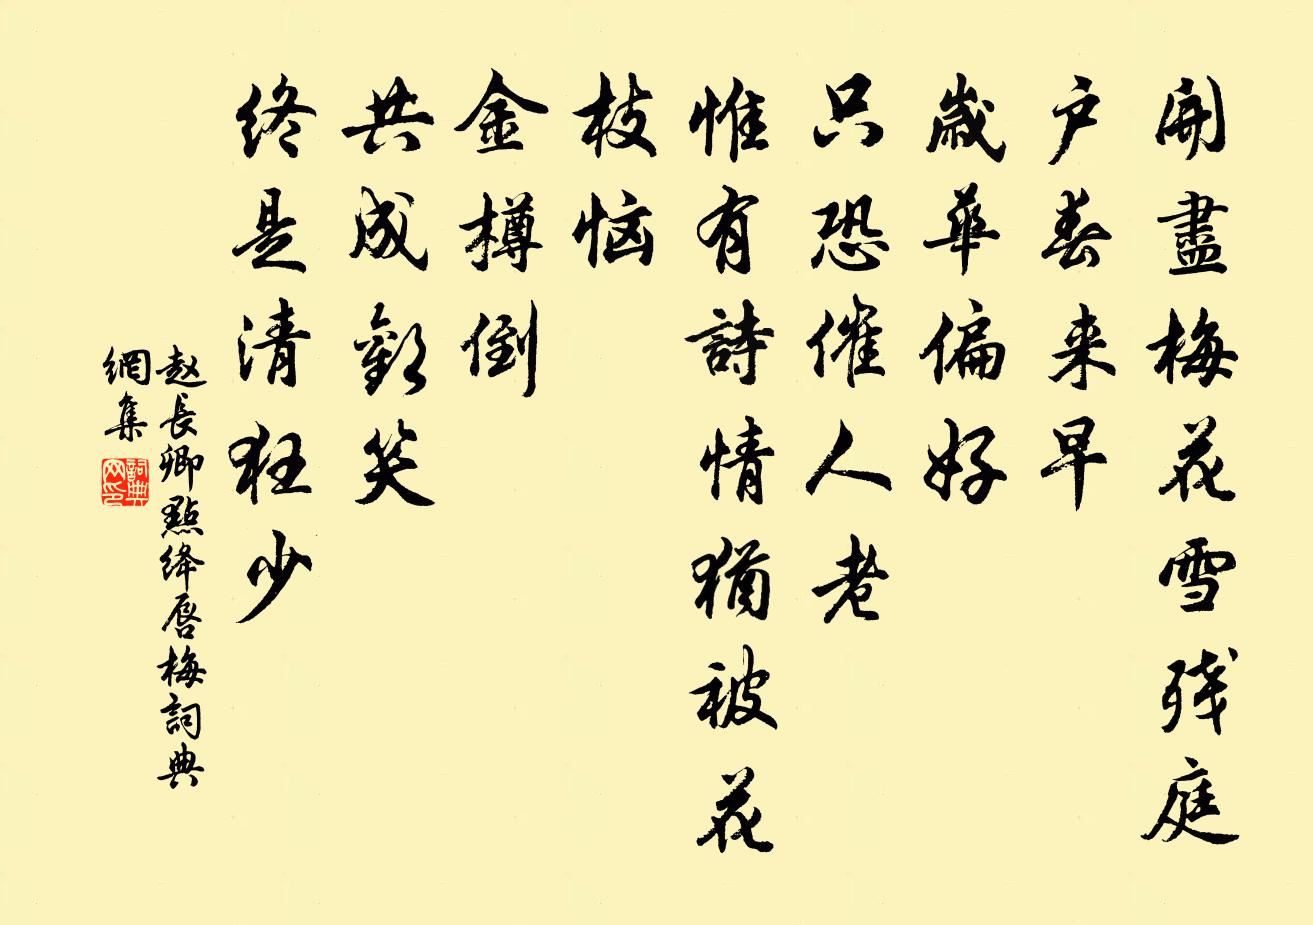 開盡梅花雪残庭
户春来早
歲華偏好
只恐催人老
惟有詩情猶被花
枝恼
金樽倒
共成歡笑
終是清狂少
赵長卿點绛唇梅詞典
網集
詞典网印